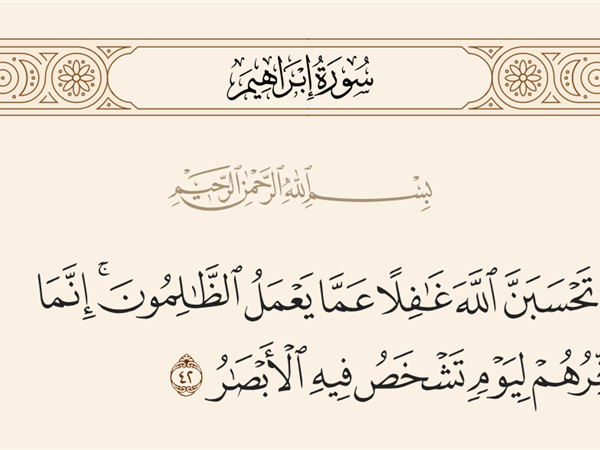 سُورَةُ إِبْرَاهِيمَ
بِسْمِ ٱللَّهِ ٱلرَّحْمَٰنِ ٱلرَّحِيمِ
تَحْسَبَنَّ ٱللَّهَ غَٰفِلًا عَمَّا يَعْمَلُ ٱلظَّٰلِمُونَ ۚ إِنَّمَا
خِّرُهُمْ لِيَوْمٍ تَشْخَصُ فِيهِ ٱلْأَبْصَٰرُ ٤٢